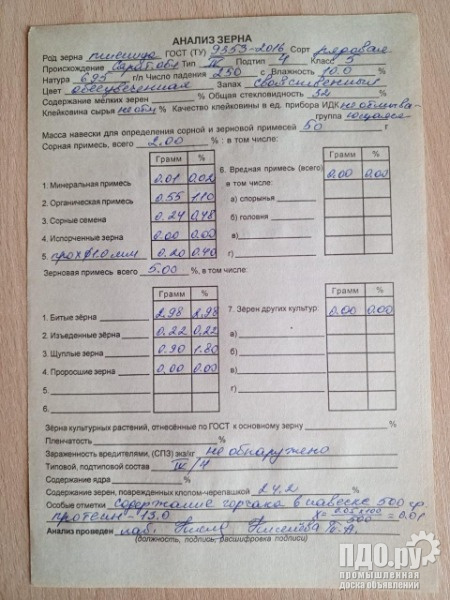 АНАЛИЗ ЗЕРНА
Род зерна пшеница ГОСТ (ТУ) 9353-2016 Сорт рядовая
Происхождение Тип IV Подтип 4 Класс 5
Натура 695 г/л Число падения 250 с Влажность 10.0 %
Цвет обесцвеченная Запах свойственный
Содержание мелких зерен % Общая стекловидность 52 %
Клейковина сырья не отм % Качество клейковины в ед. прибора ИДК не отмыва-
группа ющаяся
Масса навески для определения сорной и зерновой примесей 50 г
Сорная примесь, всего 2.00 % : в том числе:
Грамм %
1. Минеральная примесь 0.01 0.02
2. Органическая примесь 0.55 1.10
3. Сорные семена 0.24 0.48
4. Испорченные зерна 0.00 0.00
5. проход 1.0 мм 0.20 0.40
Грамм %
6. Вредная примесь (всего) 0.00 0.00
в том числе:
а) спорынья
б) головня
в)
г)
Зерновая примесь всего 5.00 %, в том числе:
Грамм %
1. Битые зёрна 2.98 2.98
2. Изъеденные зёрна 0.22 0.22
3. Щуплые зерна 0.90 1.80
4. Проросшие зерна 0.00 0.00
5.
6.
Грамм %
7. Зёрен других культур: 0.00 0.00
а)
б)
в)
г)
Зёрна культурных растений, отнесённые по ГОСТ к основному зерну %
Пленчатость %
Зараженность вредителями, (СПЗ) экз/кг не обнаружено
Типовой, подтиповой состав IV/4
Содержание ядра %
Содержание зерен, поврежденных клопом-черепашкой 24.2
Особые отметки содержание горчака в навеске 500 гр.
протеин - 13.0 X = 0.05 x 100 / 500 = 0.01
Анализ проведен лаб.
(должность, подпись, расшифровка подписи)
ПДО.ру
промышленная
доска объявлений